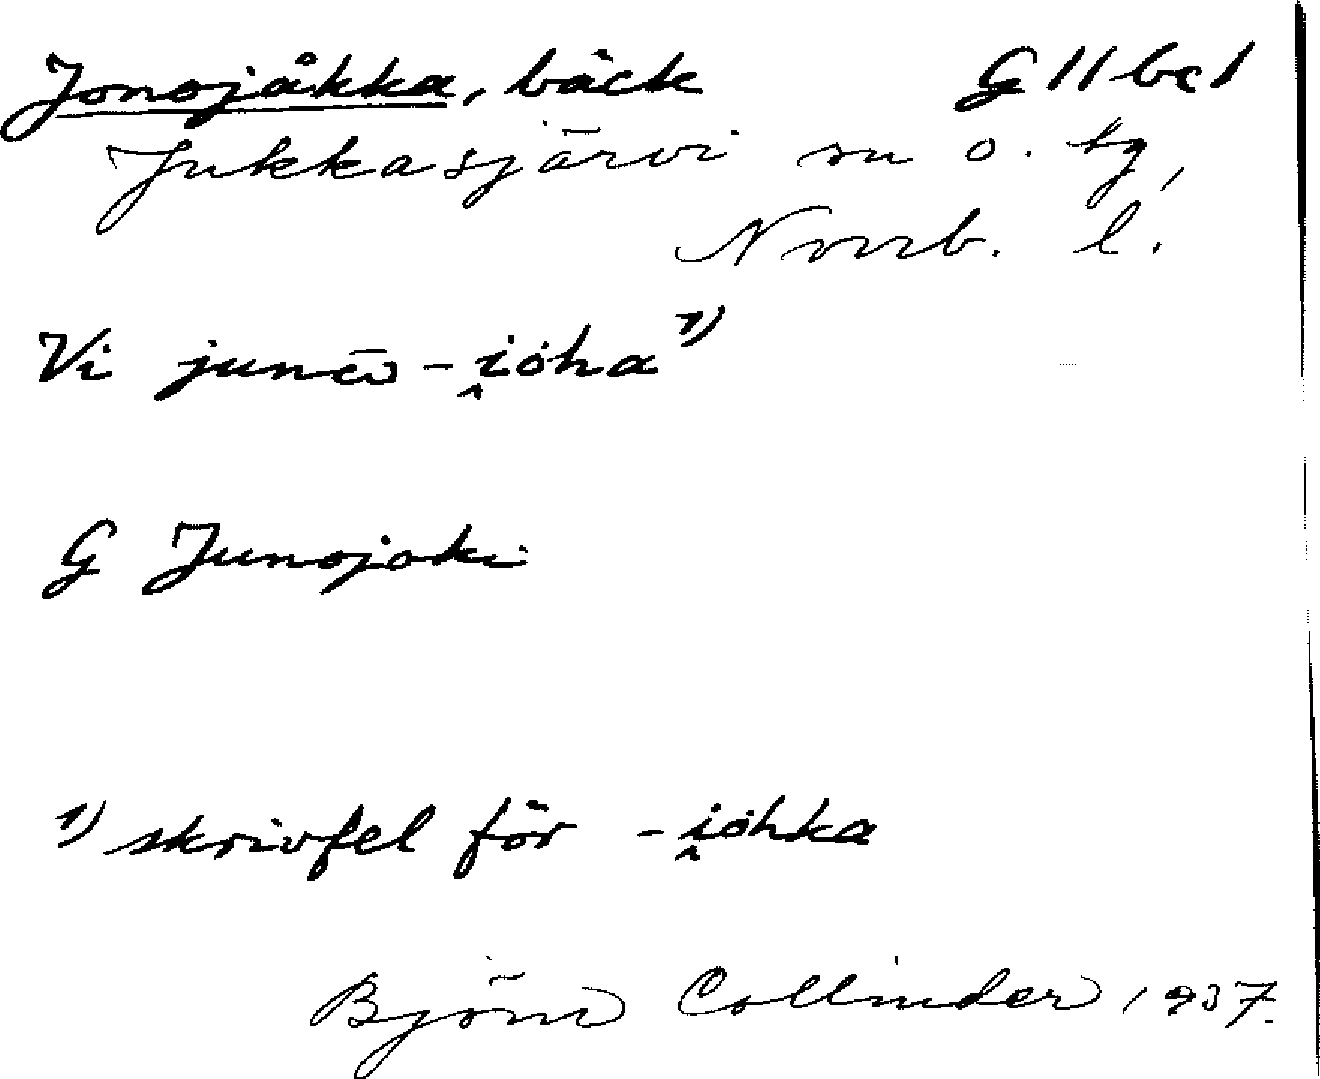 Jonojåkka, bäck G 11 bc 1
Jukkasjärvi sn o. tg,
Norrb. l.
Vi -i̭òha 1)
G Junojoki
1) skrivfel för -i̭òhka
Björn Collinder 1937.